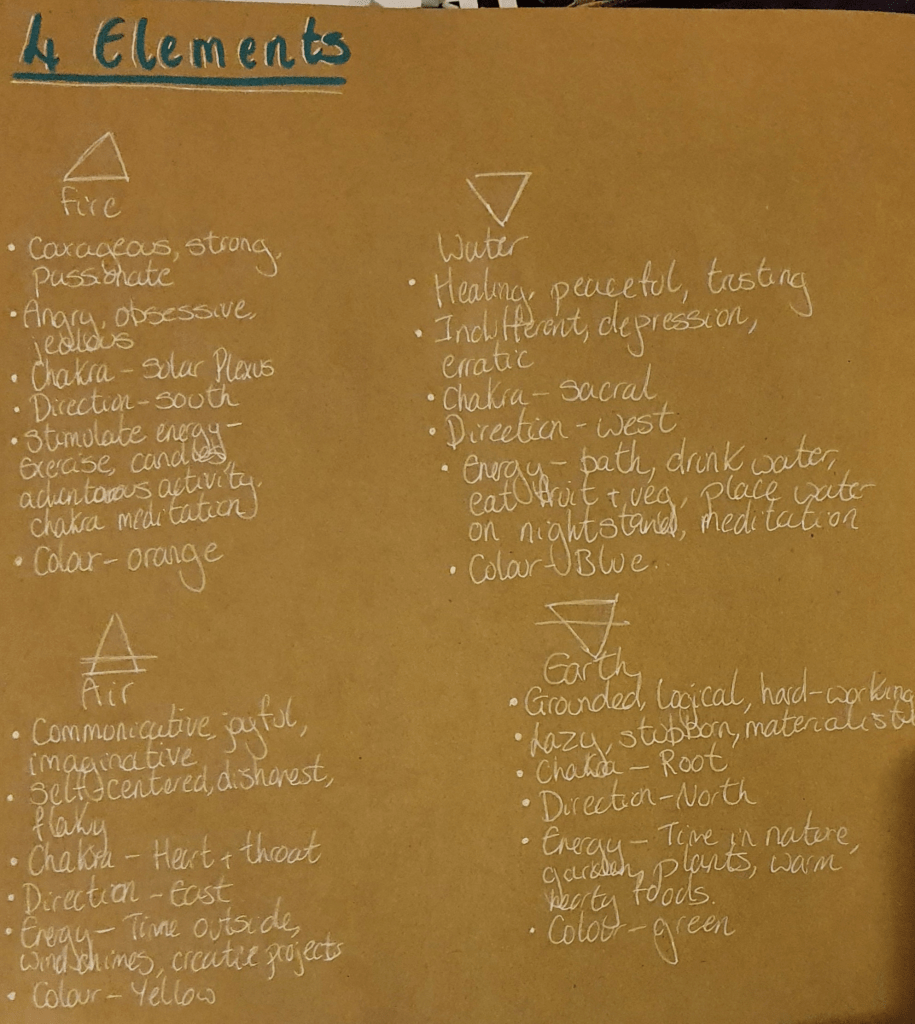 4 Elements
Fire
• Courageous, strong,
passionate
• Angry, obsessive,
jealous
• Chakra - Solar Plexus
• Direction - South
• Stimulate energy -
exercise, candles
adventorous activity,
chakra meditation
• Colour - orange
Water
• Healing, peaceful, trusting
• Indifferent, depression,
erratic
• Chakra - sacral
• Direction - West
• Energy - bath, drink water,
eat fruit + veg, place water
on nightstand, meditation
• Colour - Blue
Air
• Communicative, joyful,
imaginative
• Self-centered, dishonest,
flaky
• Chakra - Heart + throat
• Direction - East
• Energy - Time outside,
windchimes, creative projects
• Colour - Yellow
Earth
• Grounded, Logical, hard-working
• Lazy, stubborn, materialistic
• Chakra - Root
• Direction - North
• Energy - Time in nature,
garden, plants, warm,
hearty foods.
• Colour - green